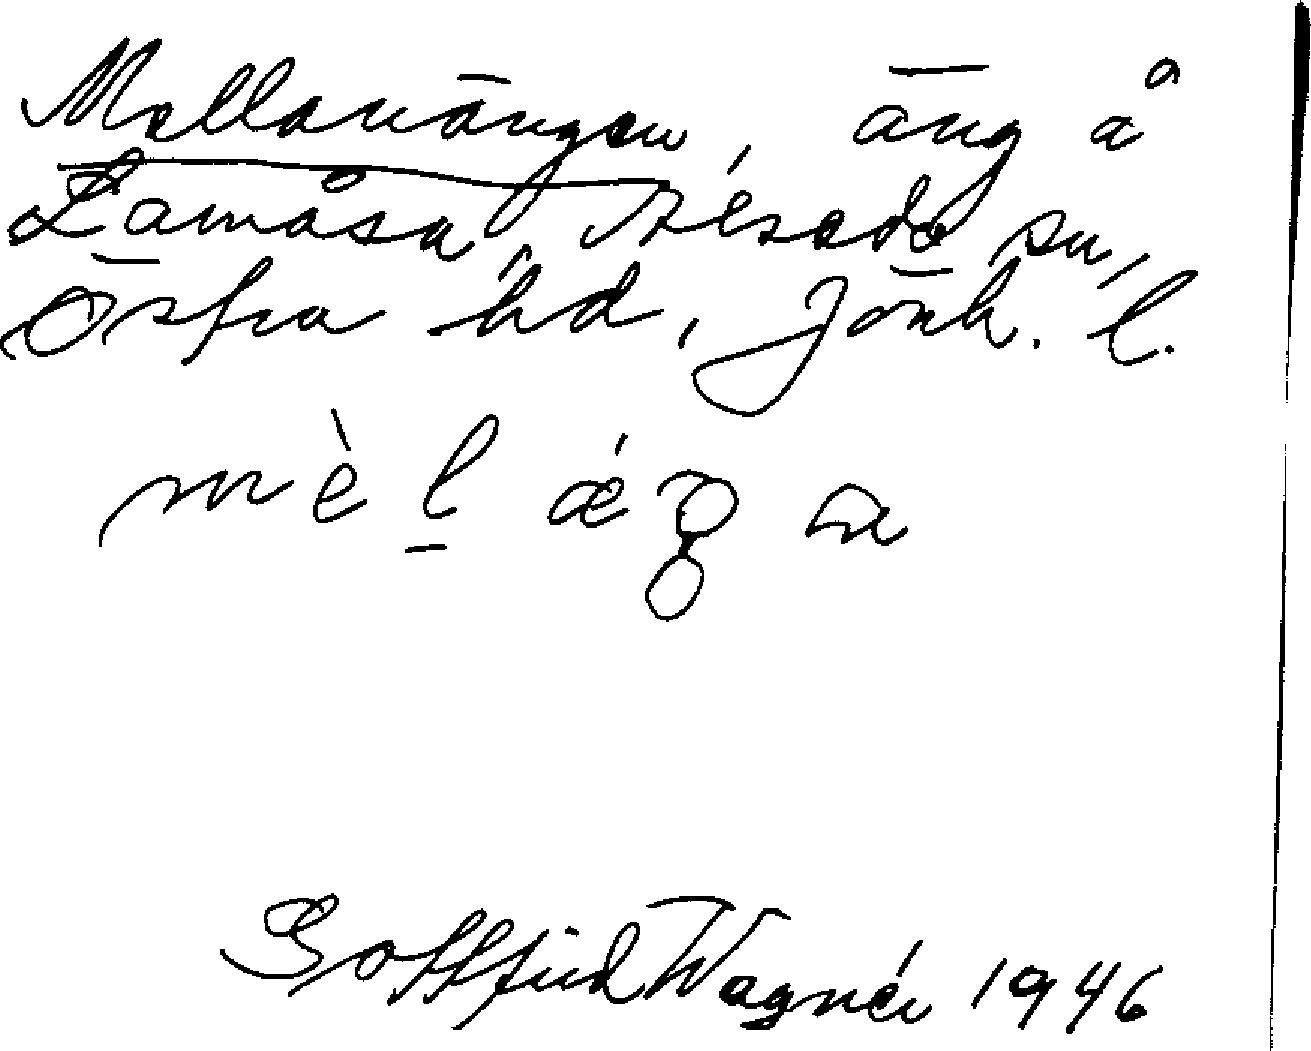 Mellanängen, äng å
Lamåsa, Alseda sn,
Östra hd, Jönk. l.
Gottfrid Wagnér 1946